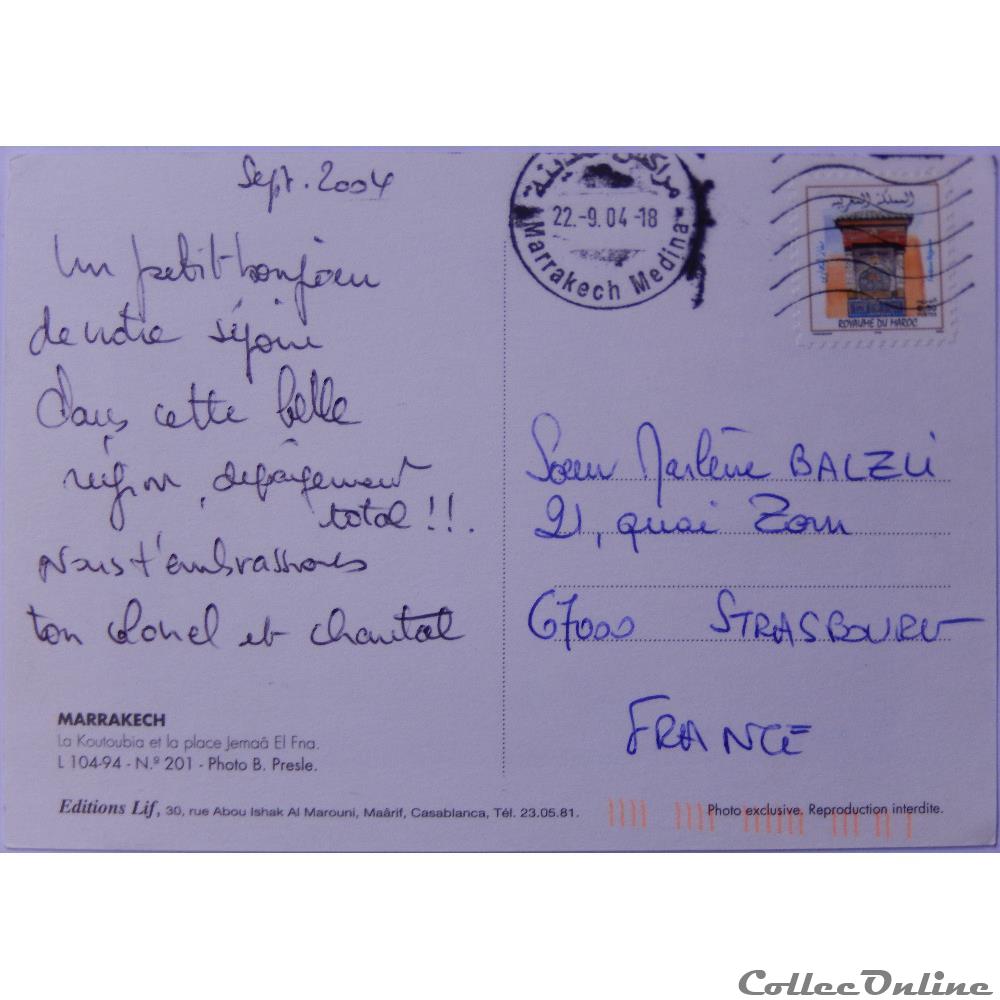 Sept. 2004
Un petit bonjour
de notre séjour
dans cette belle
région, dépaysement
total !!.
Nous t'embrassons
ton Lionel et Chantal
MARRAKECH
La Koutoubia et la place Jemaâ El Fna.
L 104-94 - N.º 201 - Photo B. Presle.
Editions Lif, 30, rue Abou Ishak Al Marouni, Maârif, Casablanca, Tél. 23.05.81.
22.-9.04-18
Marrakech Medina
المملكة المغربية
ROYAUME DU MAROC
Soeur Marlène BALZLI
21, quai Zorn
67000 STRASBOURG
FRANCE
Photo exclusive. Reproduction interdite.
CollecOnline